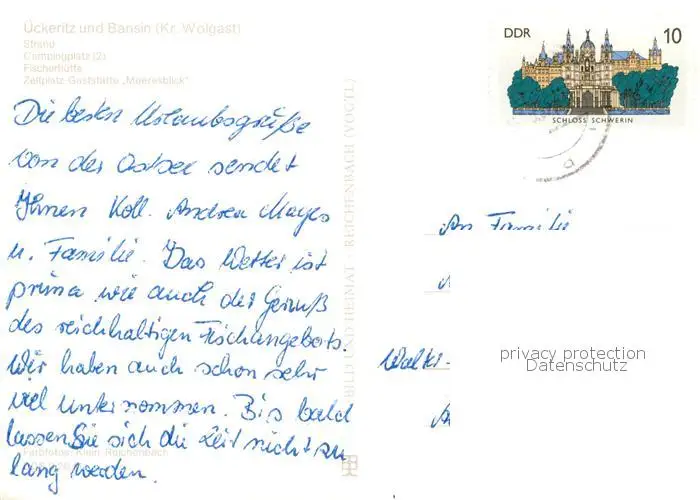 Ückeritz und Bansin (Kr. Wolgast)
Strand
Campingplatz (2)
Fischerhütte
Zeltplatz-Gaststätte „Meeresblick"
Die besten Urlaubsgrüße
von der Ostsee sendet
Ihnen Koll. Andrea Mayes
u. Familie. Das Wetter ist
prima wie auch der Genuß
des reichhaltigen Fischangebots.
Wir haben auch schon sehr
viel unternommen. Bis bald
lassen Sie sich die Zeit nicht zu
lang werden.
Farbfotos: Klein, Reichenbach
BILD UND HEIMAT REICHENBACH (VOGTL)
DDR 10
SCHLOSS SCHWERIN
An Familie
Walter-
privacy protection
Datenschutz